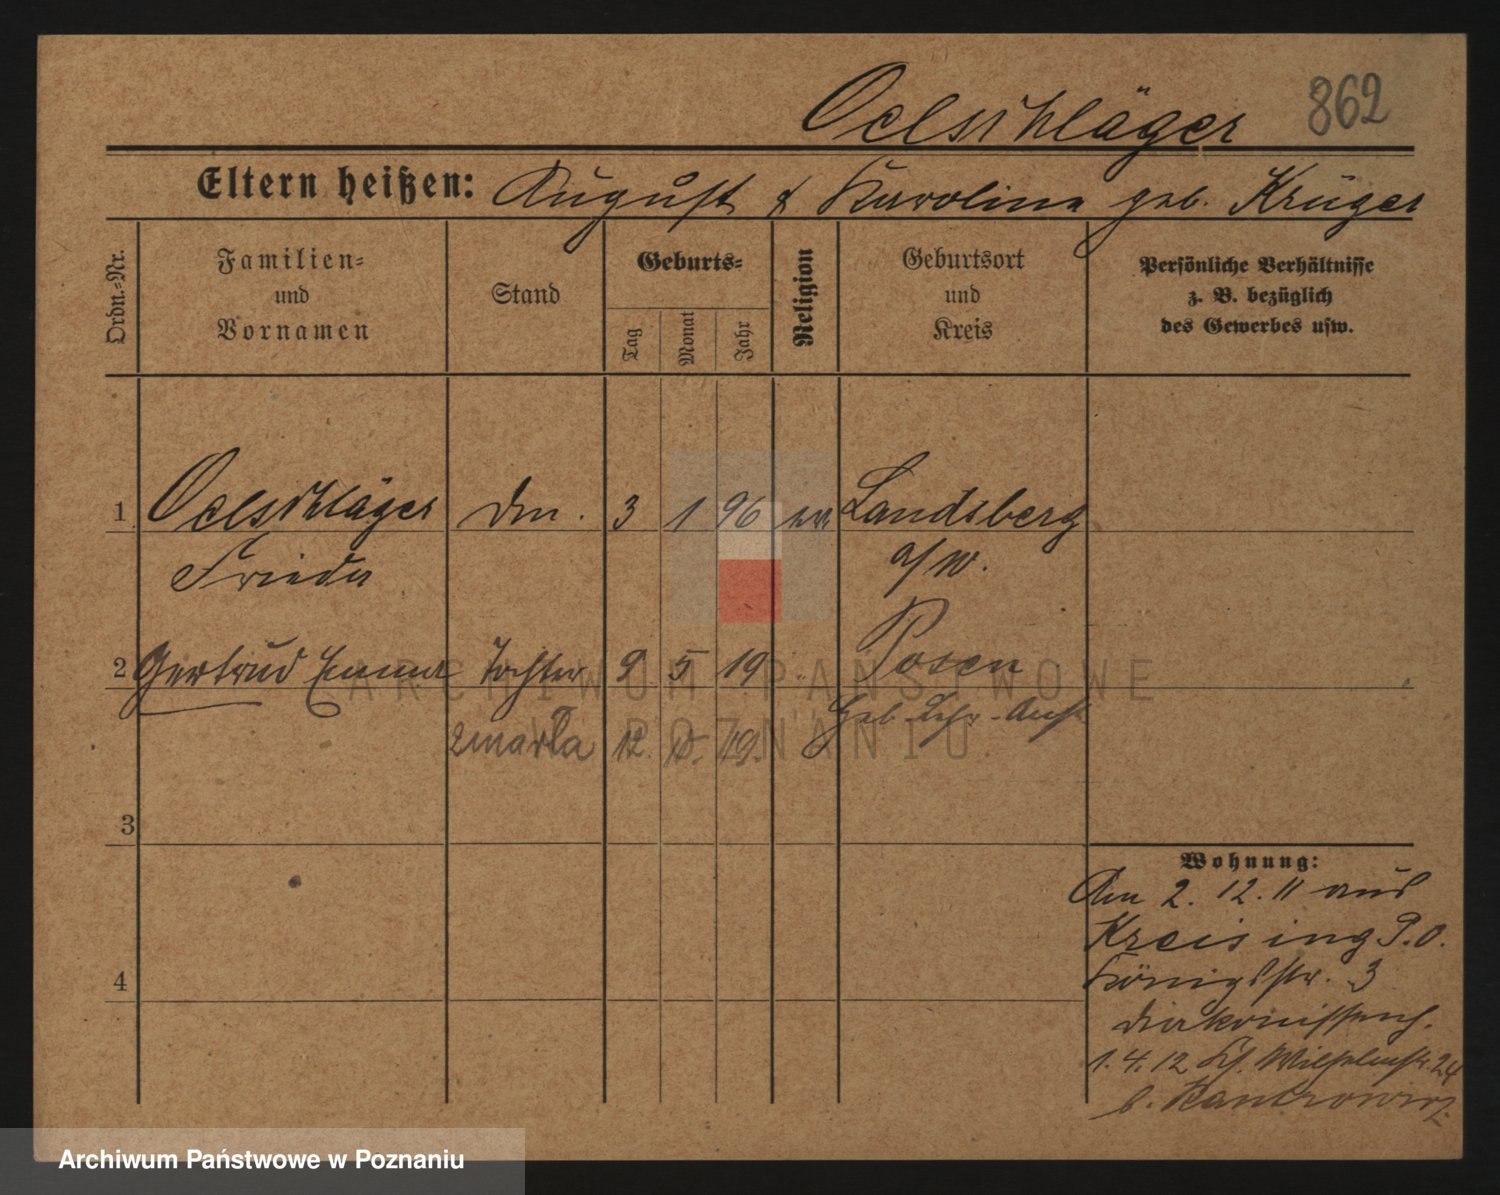 Oelschläger 862
Eltern heißen: August & Karoline geb. Krüger
Ordn.-Nr.
Familien-
und
Vornamen
Stand
Geburts-
Tag
Monat
Jahr
Religion
Geburtsort
und
Kreis
Persönliche Verhältnisse
z. B. bezüglich
des Gewerbes usw.
1 Oelschläger Dm. 3 1 96 ev Landsberg
Frieda a/W.
2 Gertrud Emma Tochter 9 5 19 " Posen
Geb.
zmarła 12. 19.
3
4
Wohnung:
Am 2. 12. 11 aus
Kreising P.O.
Königsstr. 3
Diakonissenh.
1. 4. 12 Wilhelmstr. 24
b. Kantrowicz
ARCHIWUM PAŃSTWOWE
W POZNANIU
Archiwum Państwowe w Poznaniu